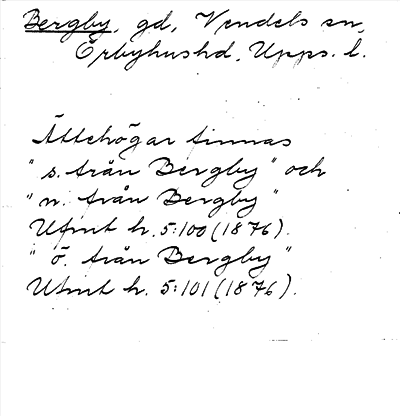 Bergby, gd, Vendels sn,
Örbyhushd, Upps. l.
Ättehögar finnas
"s. från Bergby" och
"n. från Bergby"
Ufmt h. 5:100 (1876).
"ö. från Bergby"
Ufmt h. 5:101 (1876).